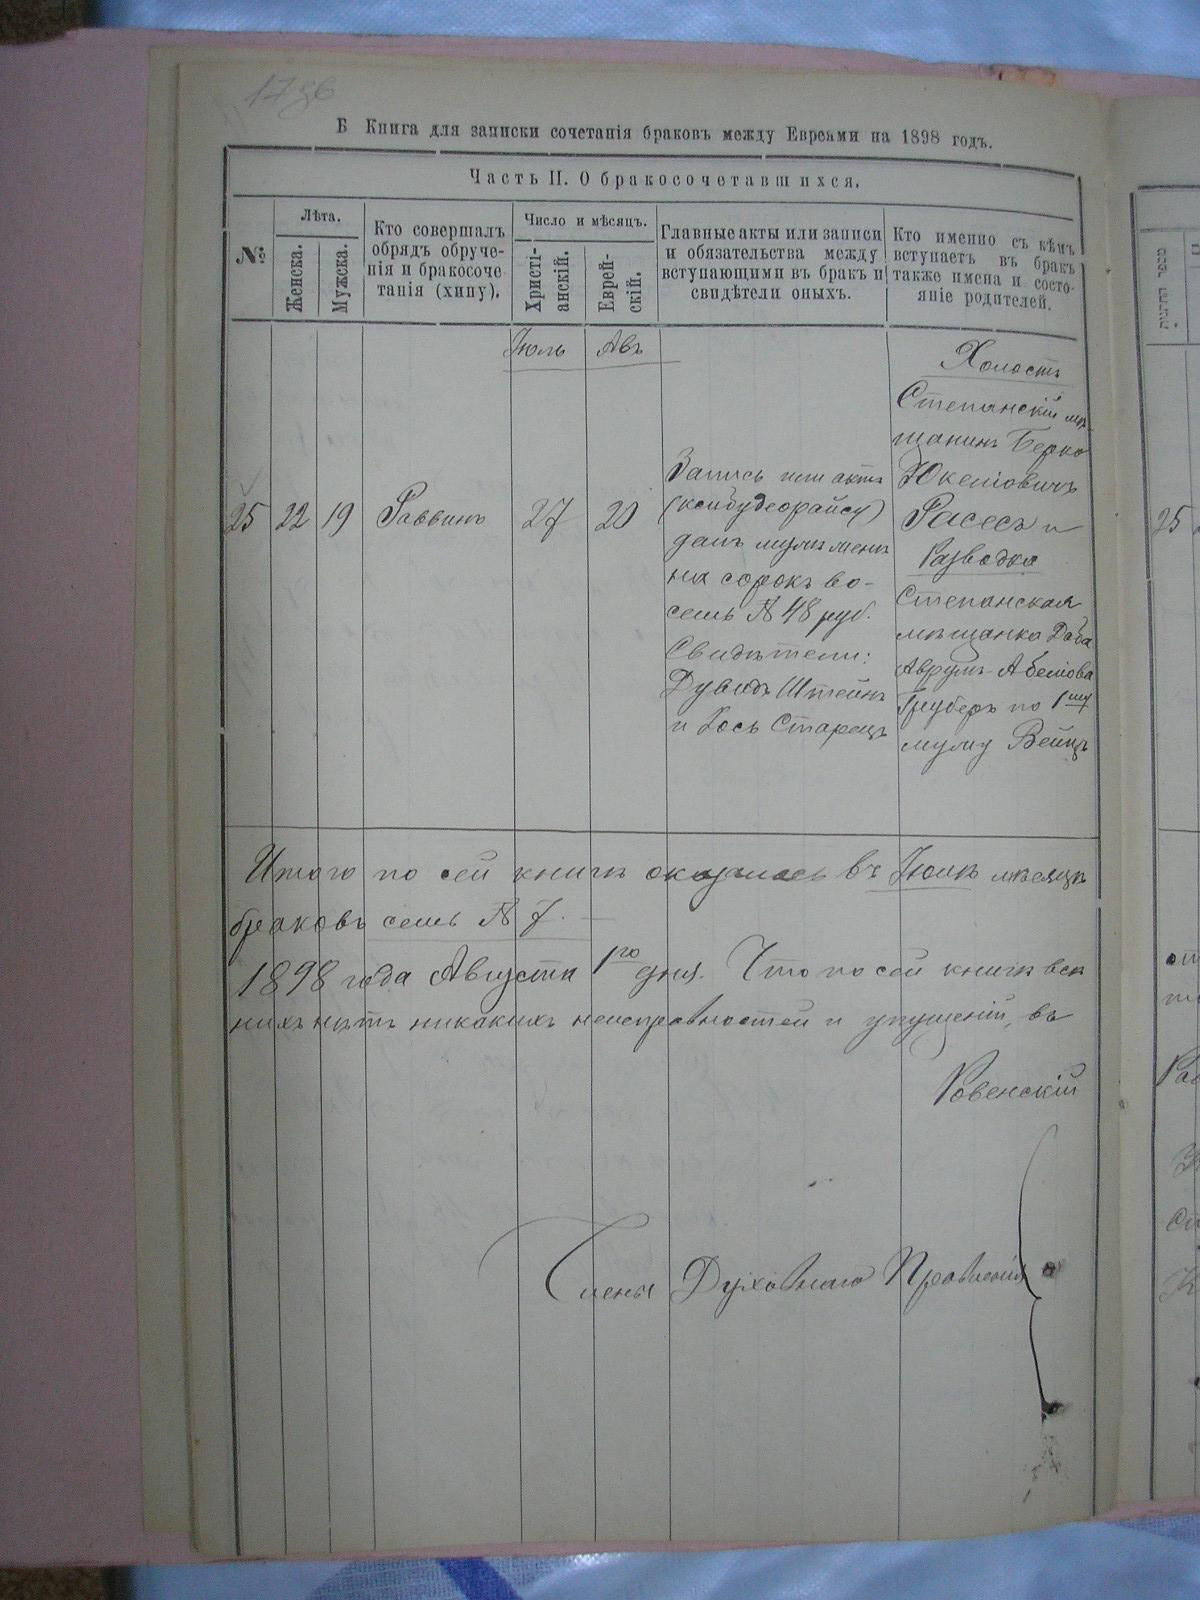 17 об
Б Книга для записки сочетанія браковъ между Евреями на 1898 годъ.
Часть II. О бракосочетавшихся.
№
Лѣта.
Женска.
Мужска.
Кто совершалъ
обрядъ обруче-
нія и бракосоче
танія (хипу).
Число и мѣсяцъ.
Христі-
анскій.
Еврей-
скій.
Главные акты или записи
и обязательства между
вступающими въ бракъ и
свидѣтели оныхъ.
Кто именно съ кѣмъ
вступаетъ въ бракъ
также имена и состо-
яніе родителей.
Іюль
Авъ
25
22
19
Раввинъ
27
20
Запись или актъ
данъ мужемъ
на сорокъ во-
семь 48 руб.
Свидѣтели:
Дувидъ Штейнъ
и Іось Старецъ
Холостъ
Степанскій мѣ-
щанинъ Берко
Юкеліовичъ
Расесъ и
Разводка
Степанская
мѣщанка Доба
Аврумъ-Абеліова
Груберъ по 1му
мужу Вейцъ
Итого по сей книгѣ оказалось въ Іюлѣ мѣсяцѣ
браковъ семь 7.
1898 года Августа 1го дня. Что по сей книгѣ все
нихъ нѣтъ никакихъ неисправностей и упущеній, въ
Ровенскій
Члены Духовнаго Правленія
25